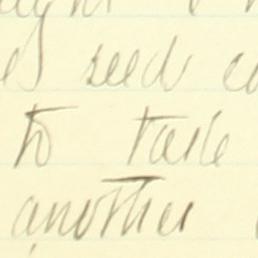 seed
to take
another